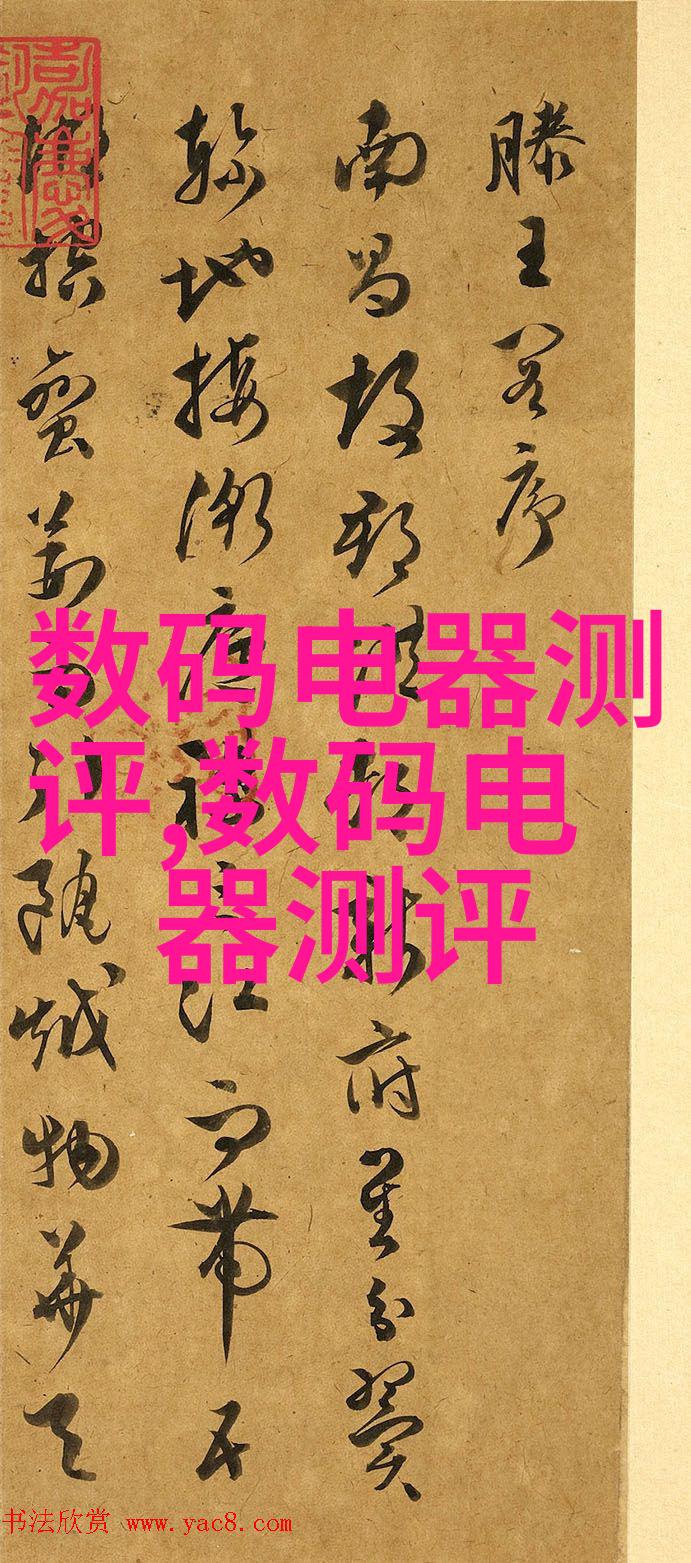 滕王阁序
南昌故郡洪都新府星分翼
軫地接衡廬襟三江而帶五
湖控蠻荆而引甌越物華天
数码电器测
评,数码电
器测评
书法欣赏 www.yac8.com